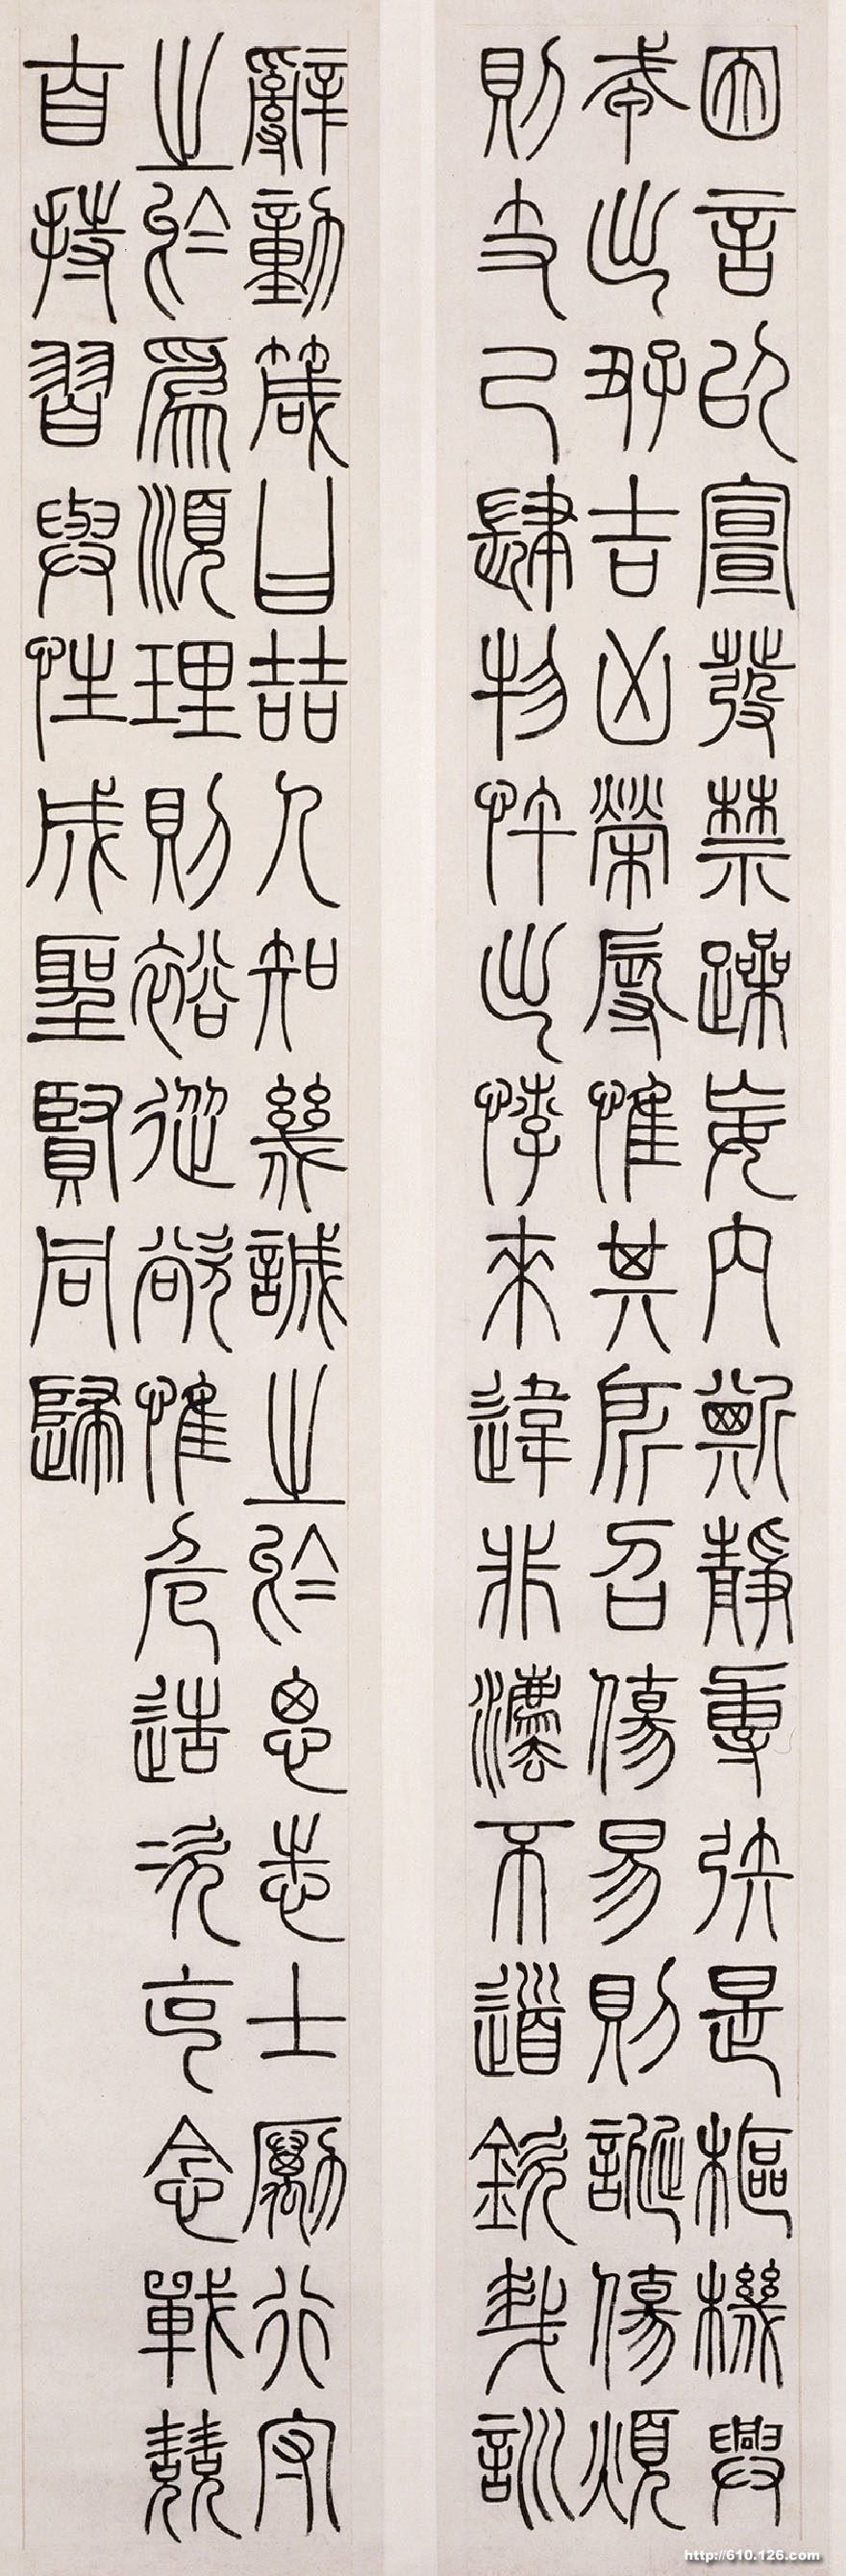 因言以宣發禁躁妄內斯靜專矧是樞機興
戎出好吉凶榮辱惟其所召傷易則誕傷煩
則支己肆物忤出悖來違非灋不道欽哉訓
辭動箴曰喆人知幾誠之於思志士勵行守
之於爲順理則裕從欲惟危造次克念戰兢
自持習與性成聖賢同歸
http://610.126.com